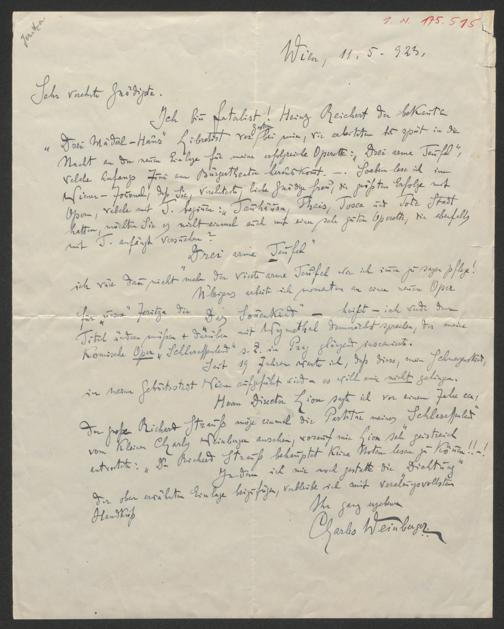 Jeritza
I. N. 175.515
Wien, 11.5.923.
Sehr verehrte Gnädigste.
Ich bin Fatalist! Heinz Reichert der bekannte
„Drei Mäderl-Haus" Librettist war gestern bei mir, wir arbeiteten bis spät in die
Nacht an der neuen Einlage für meine erfolgreiche Operette: „Drei arme Teufel",
welche Anfangs Juni am Bürgertheater herauskommt. — Soeben lese ich im
Wiener-Journal, daß Sie, verehrteste, liebe Gnädige Frau, die größten Erfolge mit
Opern, welche mit T. beginnen: Tannhäuser, Thais, Tosca und Tote Stadt
hatten, möchten Sie es nicht einmal auch mit einer sehr guten Operette, die ebenfalls
mit T. anfängt versuchen?
Drei arme Teufel"
ich wäre dann nicht mehr der vierte arme Teufel wie ich immer zu sagen pflege!
Übrigens arbeite ich momentan an einer neuen Oper
für „unsere" Jeritza die „Das Sonnenkind" — heißt — ich werde den
Titel ändern müssen & darüber mit demnächst sprechen, der meine
Komische Oper „Schlaraffenland" s. Z. in Prag glänzend
Seit 19 Jahren warte ich, daß diese, mein Schmerzenskind,
in meiner Geburtsstadt Wien aufgeführt wird & es will mir nicht gelingen.
Herrn Director Lion sagte ich vor einem Jahre ca.,
Der große Richard Strauß möge einmal die Partitur meines „Schlaraffenland"
vom kleinen Charles Weinberger ansehen, worauf mir Lion sehr geistreich
entgegnete: „Der Richard Strauß behauptet keine Noten lesen zu können!!"
Indem ich mir noch gestatte die „Dichtung"
der oben erwähnten Einlage beizufügen, verbleibe ich mit verehrungsvollstem
Handkuß
Ihr ganz ergebener
Charles Weinberger